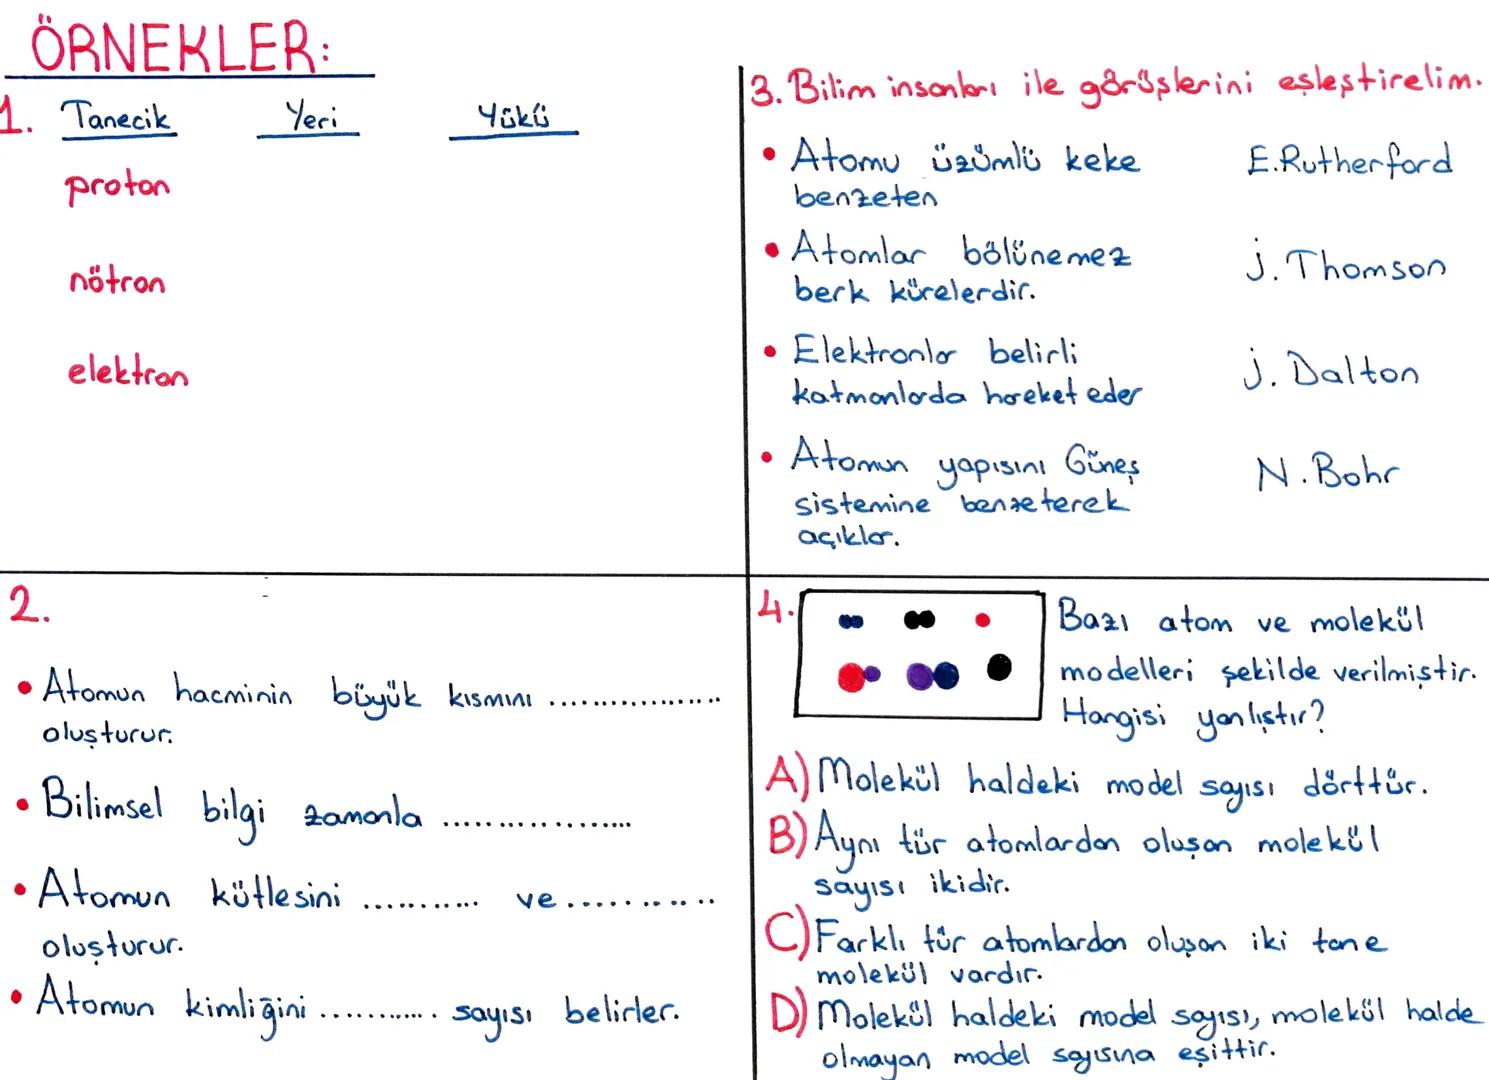 ÖRNEKLER:
1. Tanecik Yeri Yükü
proton
nötron
elektron
2.
• Atomun hacminin büyük kısmını ..................
oluşturur.
• Bilimsel bilgi zamanla ..................
• Atomun kütlesini ........... ve ...........
oluşturur.
• Atomun kimliğini ............ sayısı belirler.
3. Bilim insanları ile görüşlerini eşleştirelim.
• Atomu üzümlü keke E.Rutherford
benzeten
• Atomlar bölünemez J. Thomson
berk kürelerdir.
• Elektronlar belirli J. Dalton
katmanlarda hareket eder
• Atomun yapısını Güneş N. Bohr
sistemine benzeterek
açıklar.
4. Bazı atom ve molekül
modelleri şekilde verilmiştir.
Hangisi yanlıştır?
A) Molekül haldeki model sayısı dörttür.
B) Aynı tür atomlardan oluşan molekül
sayısı ikidir.
C) Farklı tür atomlardan oluşan iki tane
molekül vardır.
D) Molekül haldeki model sayısı, molekül halde
olmayan model sayısına eşittir.